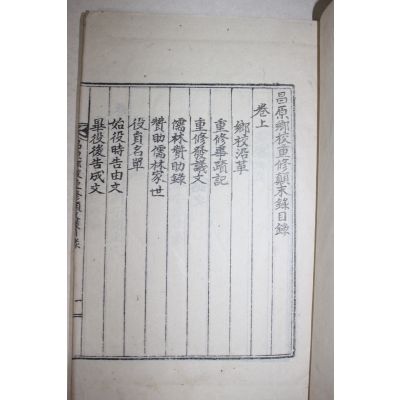 昌原鄕校重修顛末錄目錄
卷上
鄕校沿革
重修事蹟記
重修發議文
儒林贊助錄
贊助儒林家世
役員名單
始役時告由文
畢役後告成文